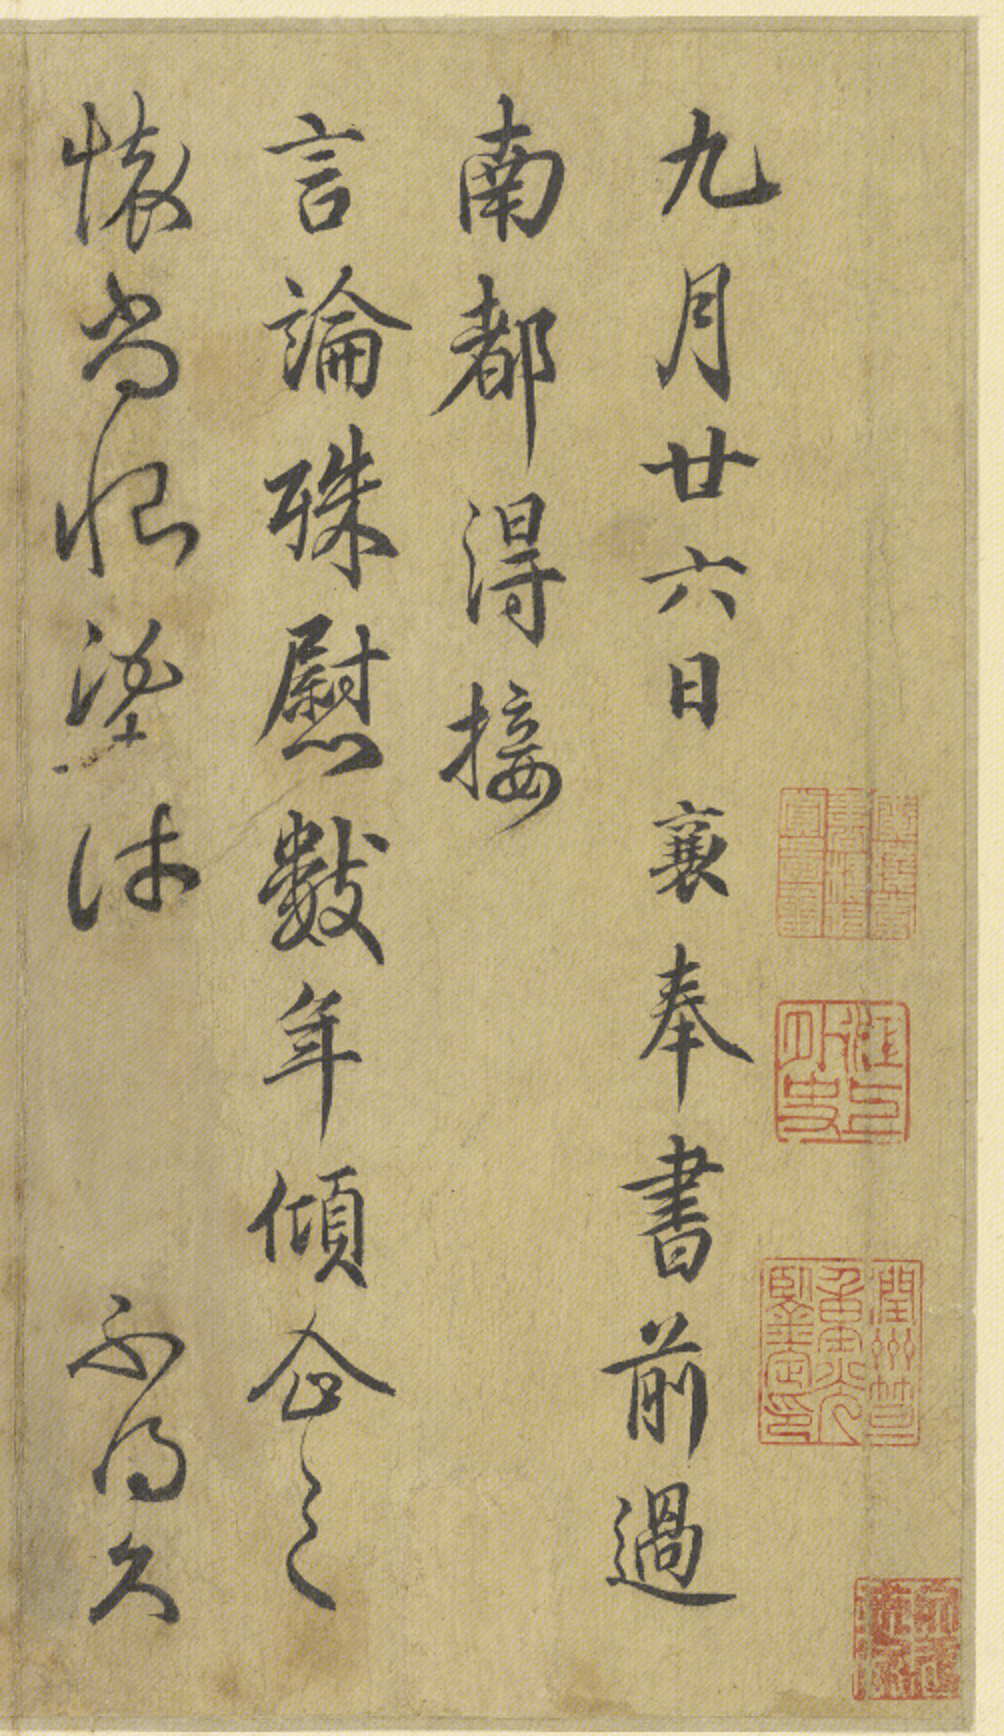 九月廿六日襄奉書前過
南都得接
言論殊慰數年傾企之
懷尚恨望  不得久